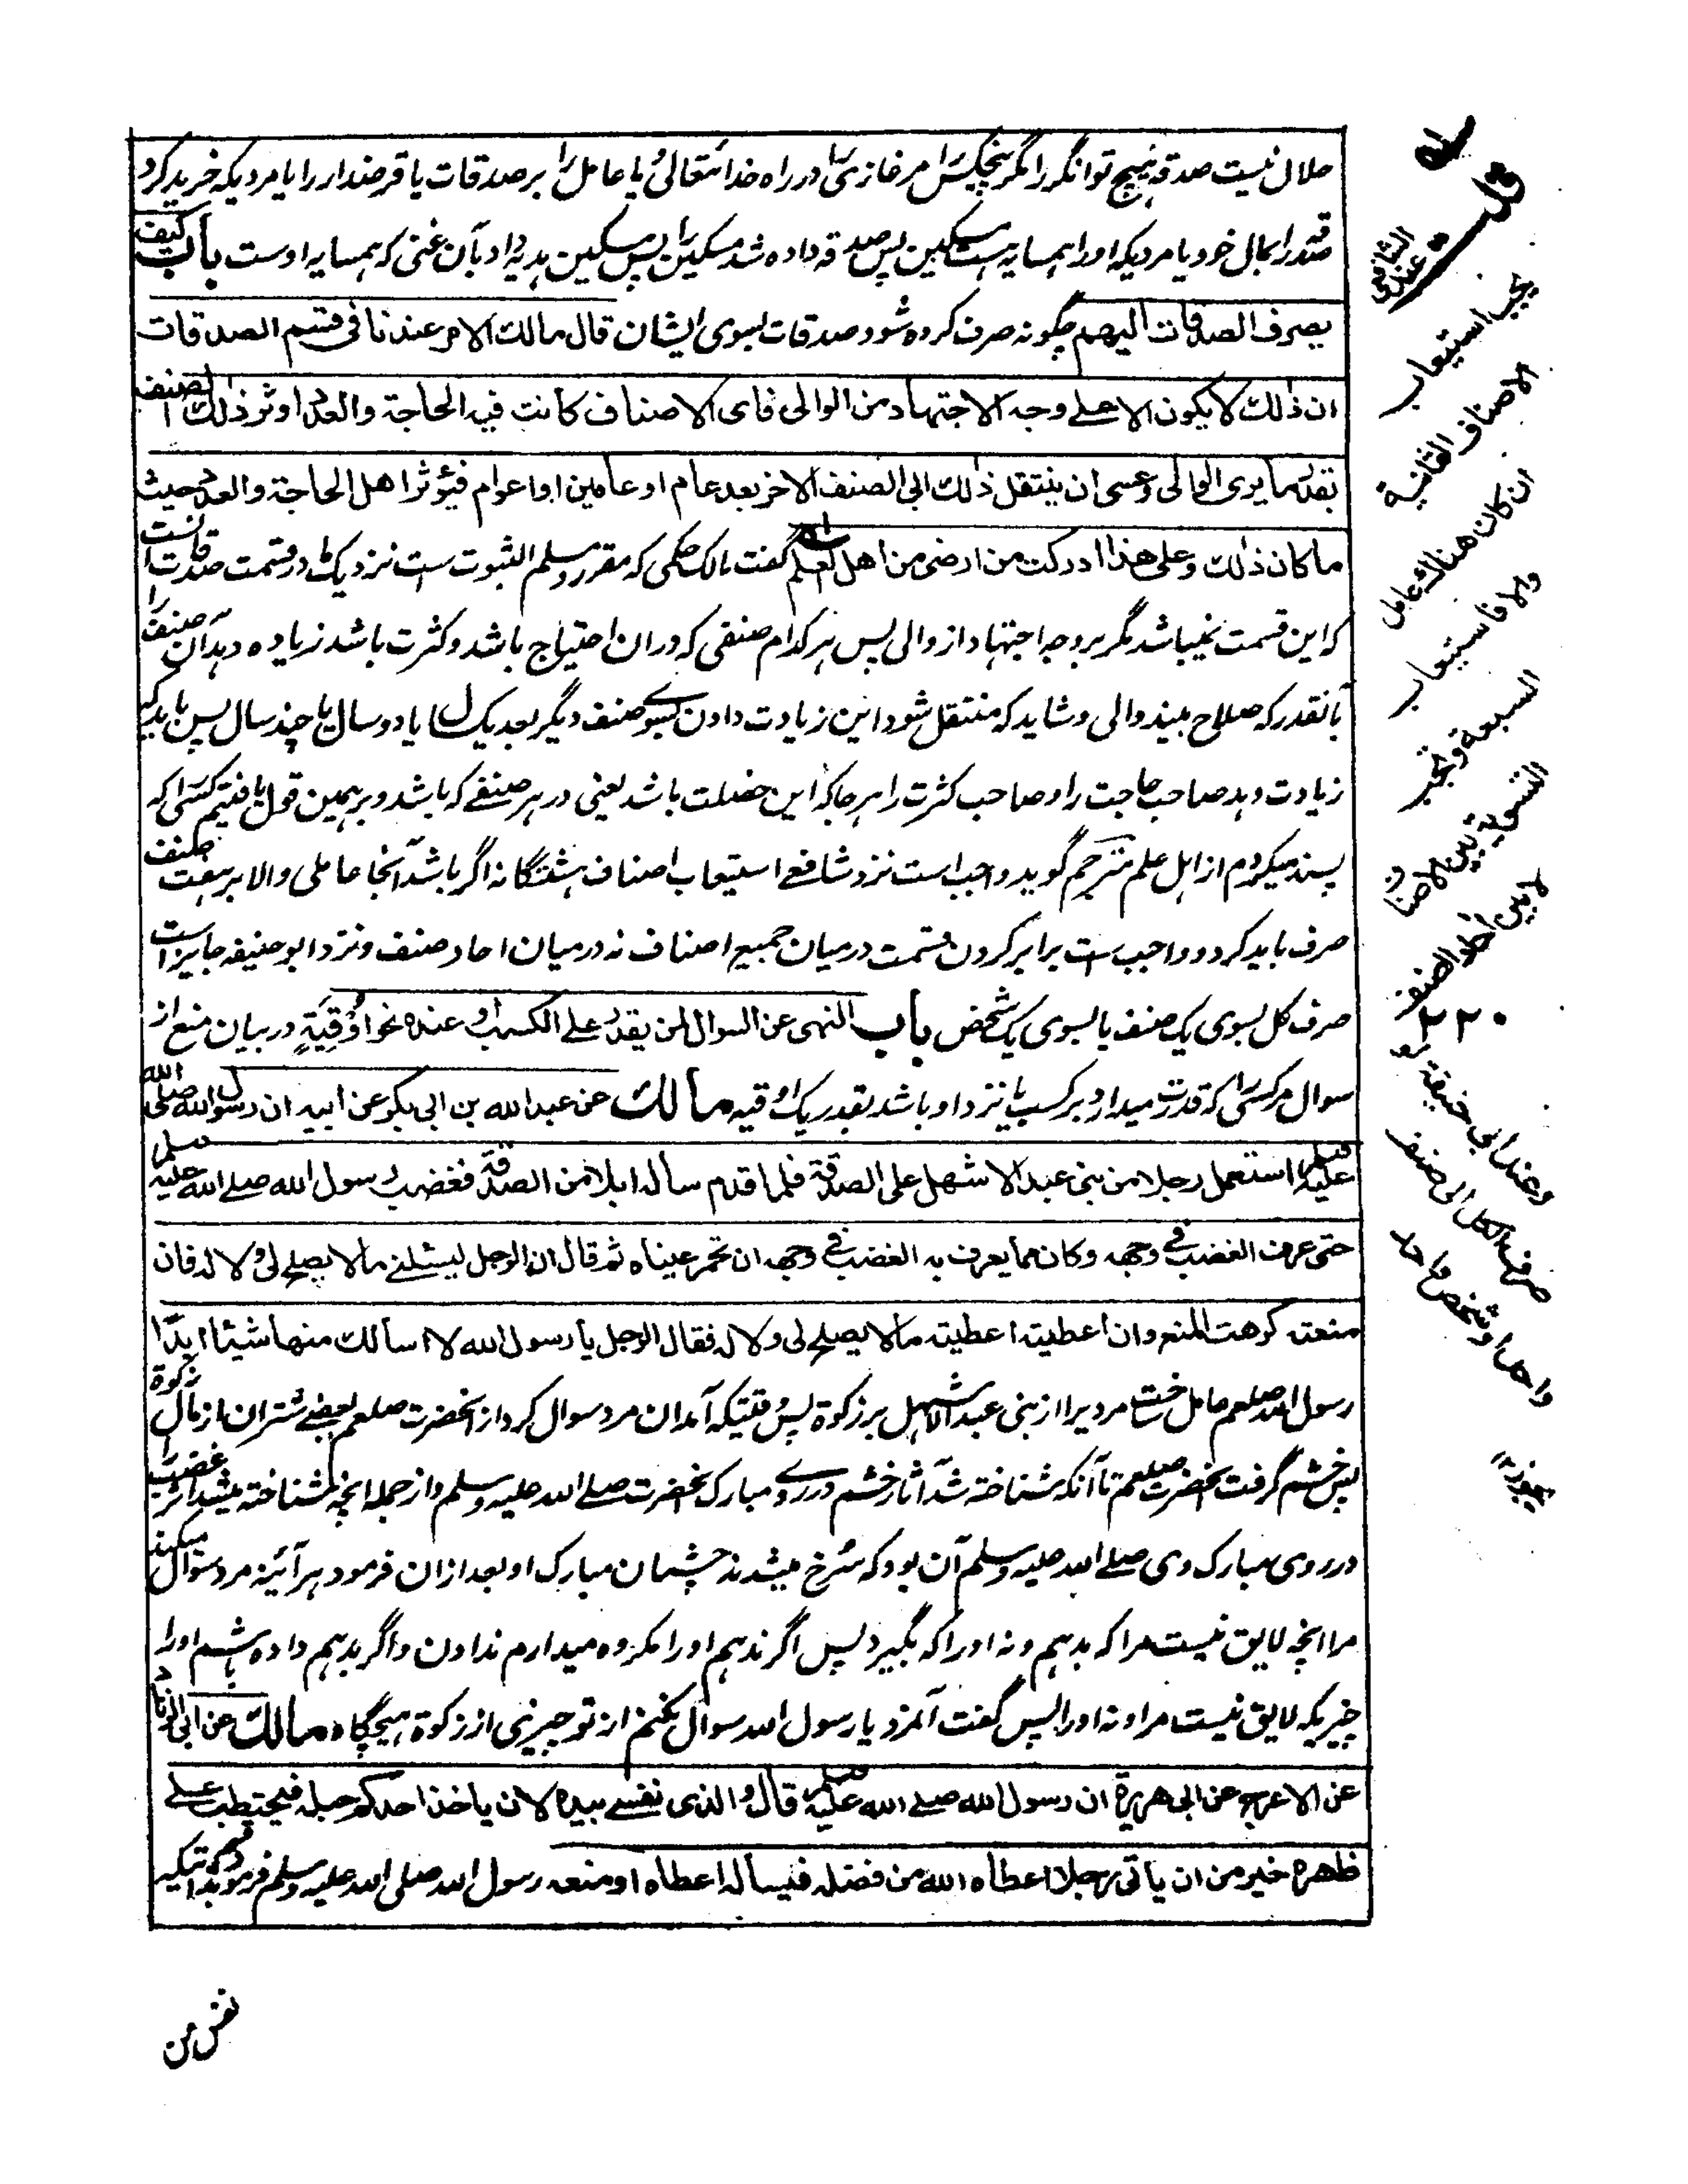 حلال نیست صدقه هیچ توانگر را مگر پنجکس را مر غازی را در راه خدا تعالی یا عامل را بر صدقات یا قرضدار را یا مردیکه خرید کرد
صدقه را بمال خود یا مردیکه او را همسایه هست مسکین پس صدقه داده شد مسکین را پس مسکین هدیه داد بآن غنی که همسایه اوست باب کیف
یصرف الصدقات الیهم چگونه صرف کرده شود صدقات بسوی ایشان قال مالك الامر عندنا فی قسم الصدقات
ان ذلك لا یکون الا علی وجه الاجتهاد من الوالی فای الاصناف کانت فیه الحاجة والعدد اوثر ذلك الصنف
بقدر ما یری الوالی وعسی ان ینتقل ذلك الی الصنف الاخر بعد عام او عامین او اعوام فیؤثر اهل الحاجة والعدد حیث
ما کان ذلك وعلی هذا ادرکت من ارضی من اهل العلم گفت مالک حکمی که مقرر و مسلم الثبوت ست نزدیک ما در قسمت صدقات آنست
که این قسمت نمیباشد مگر بر وجه اجتهاد از والی پس هر کدام صنفی که در ان احتیاج باشد و کثرت باشد زیاده دهد آن صنف را
بآنقدر که صلاح بیند والی و شاید که منتقل شود این زیادت دادن بسوی صنف دیگر بعد یک سال یا دو سال یا چند سال پس باید که
زیادت دهد صاحب حاجت را و صاحب کثرت را هر جا که این خصلت باشد یعنی در هر صنفی که باشد و برهمین قول یافتیم کسی را که
پسند میکردم از اهل علم مترجم گوید واجب است نزد شافعی استیعاب اصناف هشتگانه اگر باشد آنجا عاملی والا بر هفت صنف
صرف باید کرد و واجب ست برابر کردن قسمت درمیان جمیع اصناف نه درمیان احاد صنف و نزد ابو حنیفه جایز است
صرف کل بسوی یک صنف یا بسوی یک شخص باب النهی عن السوال لمن یقدر علی الکسب او عنده نحو اوقیة در بیان منع از
سوال مر کسی را که قدرت میدارد بر کسب یا نزد او باشد بقدر یک اوقیه مالك عن عبد الله بن ابی بکر عن ابیه ان رسول الله صلی الله
علیه وسلم استعمل رجلا من بنی عبد الاشهل علی الصدقة فلما قدم ساله ابلا من الصدقة فغضب رسول الله صلی الله علیه وسلم
حتی عرف الغضب فی وجهه وکان مما یعرف به الغضب فی وجهه ان تحمر عیناه ثم قال ان الرجل لیسئلنی ما لا یصلح لی ولا له فان
منعته کرهت المنع وان اعطیته اعطیته ما لا یصلح لی ولا له فقال الرجل یا رسول الله لا اسالك منها شیئا ابدا
رسول الله صلعم عامل ساخت مردیرا از بنی عبد الاشهل بر زکوة پس وقتیکه آمد ان مرد سوال کرد از آنحضرت صلعم بعضی شتران از مال زکوة
پس خشم گرفت آنحضرت صلعم تا آنکه شناخته شد آثار خشم در روی مبارک آنحضرت صلی الله علیه وسلم و از جمله انچه شناخته میشد اثر غضب را
در روی مبارک وی صلی الله علیه وسلم آن بود که سرخ میشدند چشمان مبارک او بعد ازان فرمود هر آئینه مرد سوال میکند
مرا انچه لایق نیست مرا که بدهم و نه او را که بگیرد پس اگر ندهم او را مکروه میدارم ندادن و اگر بدهم داده باشم او را
چیزیکه لایق نیست مرا و نه او را پس گفت آنمرد یا رسول الله سوال نکنم از تو چیزی از زکوة هیچگاه مالك عن ابی الزناد
عن الاعرج عن ابی هریرة ان رسول الله صلی الله علیه وسلم قال والذی نفسی بیده لان یاخذ احدکم حبله فیحتطب علی
ظهره خیر من ان یاتی رجلا اعطاه الله من فضله فیساله اعطاه او منعه رسول الله صلی الله علیه وسلم فرمود قسم بذاتیکه
نفس من
قلت
عند الشافعی
یجب استیعاب
الاصناف الثمانیة
ان کان هناك عامل
والا فاستیعاب
السبعة وتجب
التسویة بین الاصناف
لا بین احاد الصنف
۲۲۰
وعند ابی حنیفة
صرف الکل الی صنف
واحد او شخص واحد
یجوز ۱۲